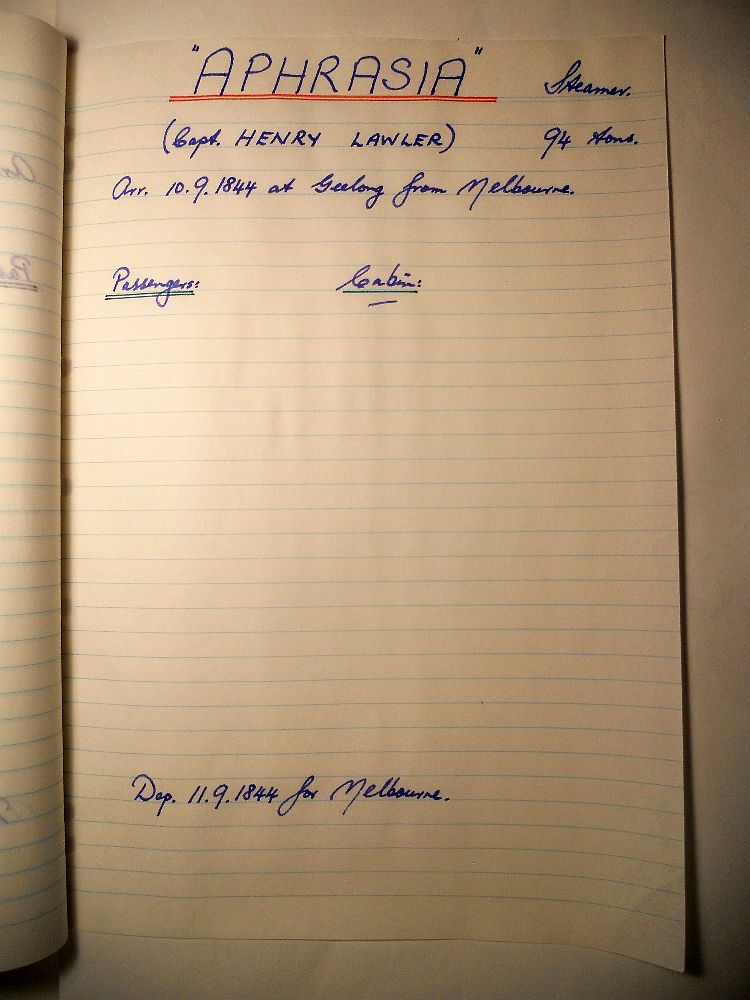 "APHRASIA" Steamer.
(Capt. HENRY LAWLER) 94 tons.
Arr. 10.9.1844 at Geelong from Melbourne.
Passengers: Cabin:
Dep. 11.9.1844 for Melbourne.